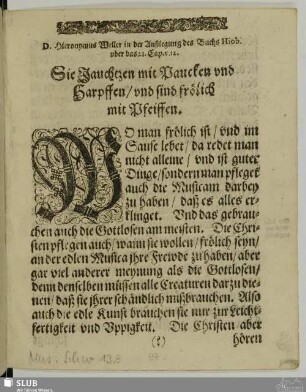 D. Hieronymus Weller in der Außlegung des Buchs Hiob.
vber das 21. Cap. v. 12.
Sie Jauchtzen mit Paucken vnd
Harpffen / vnd sind frölich
mit Pfeiffen.
WO man frölich ist / vnd im
Sause lebet / da redet man
nicht alleine / vnd ist guter
Dinge / sondern man pfleget
auch die Musicam darbey
zu haben / daß es alles er-
klinget. Vnd das gebrau-
chen auch die Gottlosen am meisten. Die Chri-
sten pflegen auch / wann sie wollen / frölich seyn /
an der edlen Musica jhre Frewde zu haben / aber
gar viel anderer meynung als die Gottlosen /
denn denselben müssen alle Creaturen darzu die-
nen / daß sie jhrer schändlich mißbrauchen. Also
auch die edle Kunst brauchen sie nur zur Leicht-
fertigkeit vnd Vppigkeit. Die Christen aber
hören
Mus. Löb. 13,8
SLUB
Wir führen Wissen.